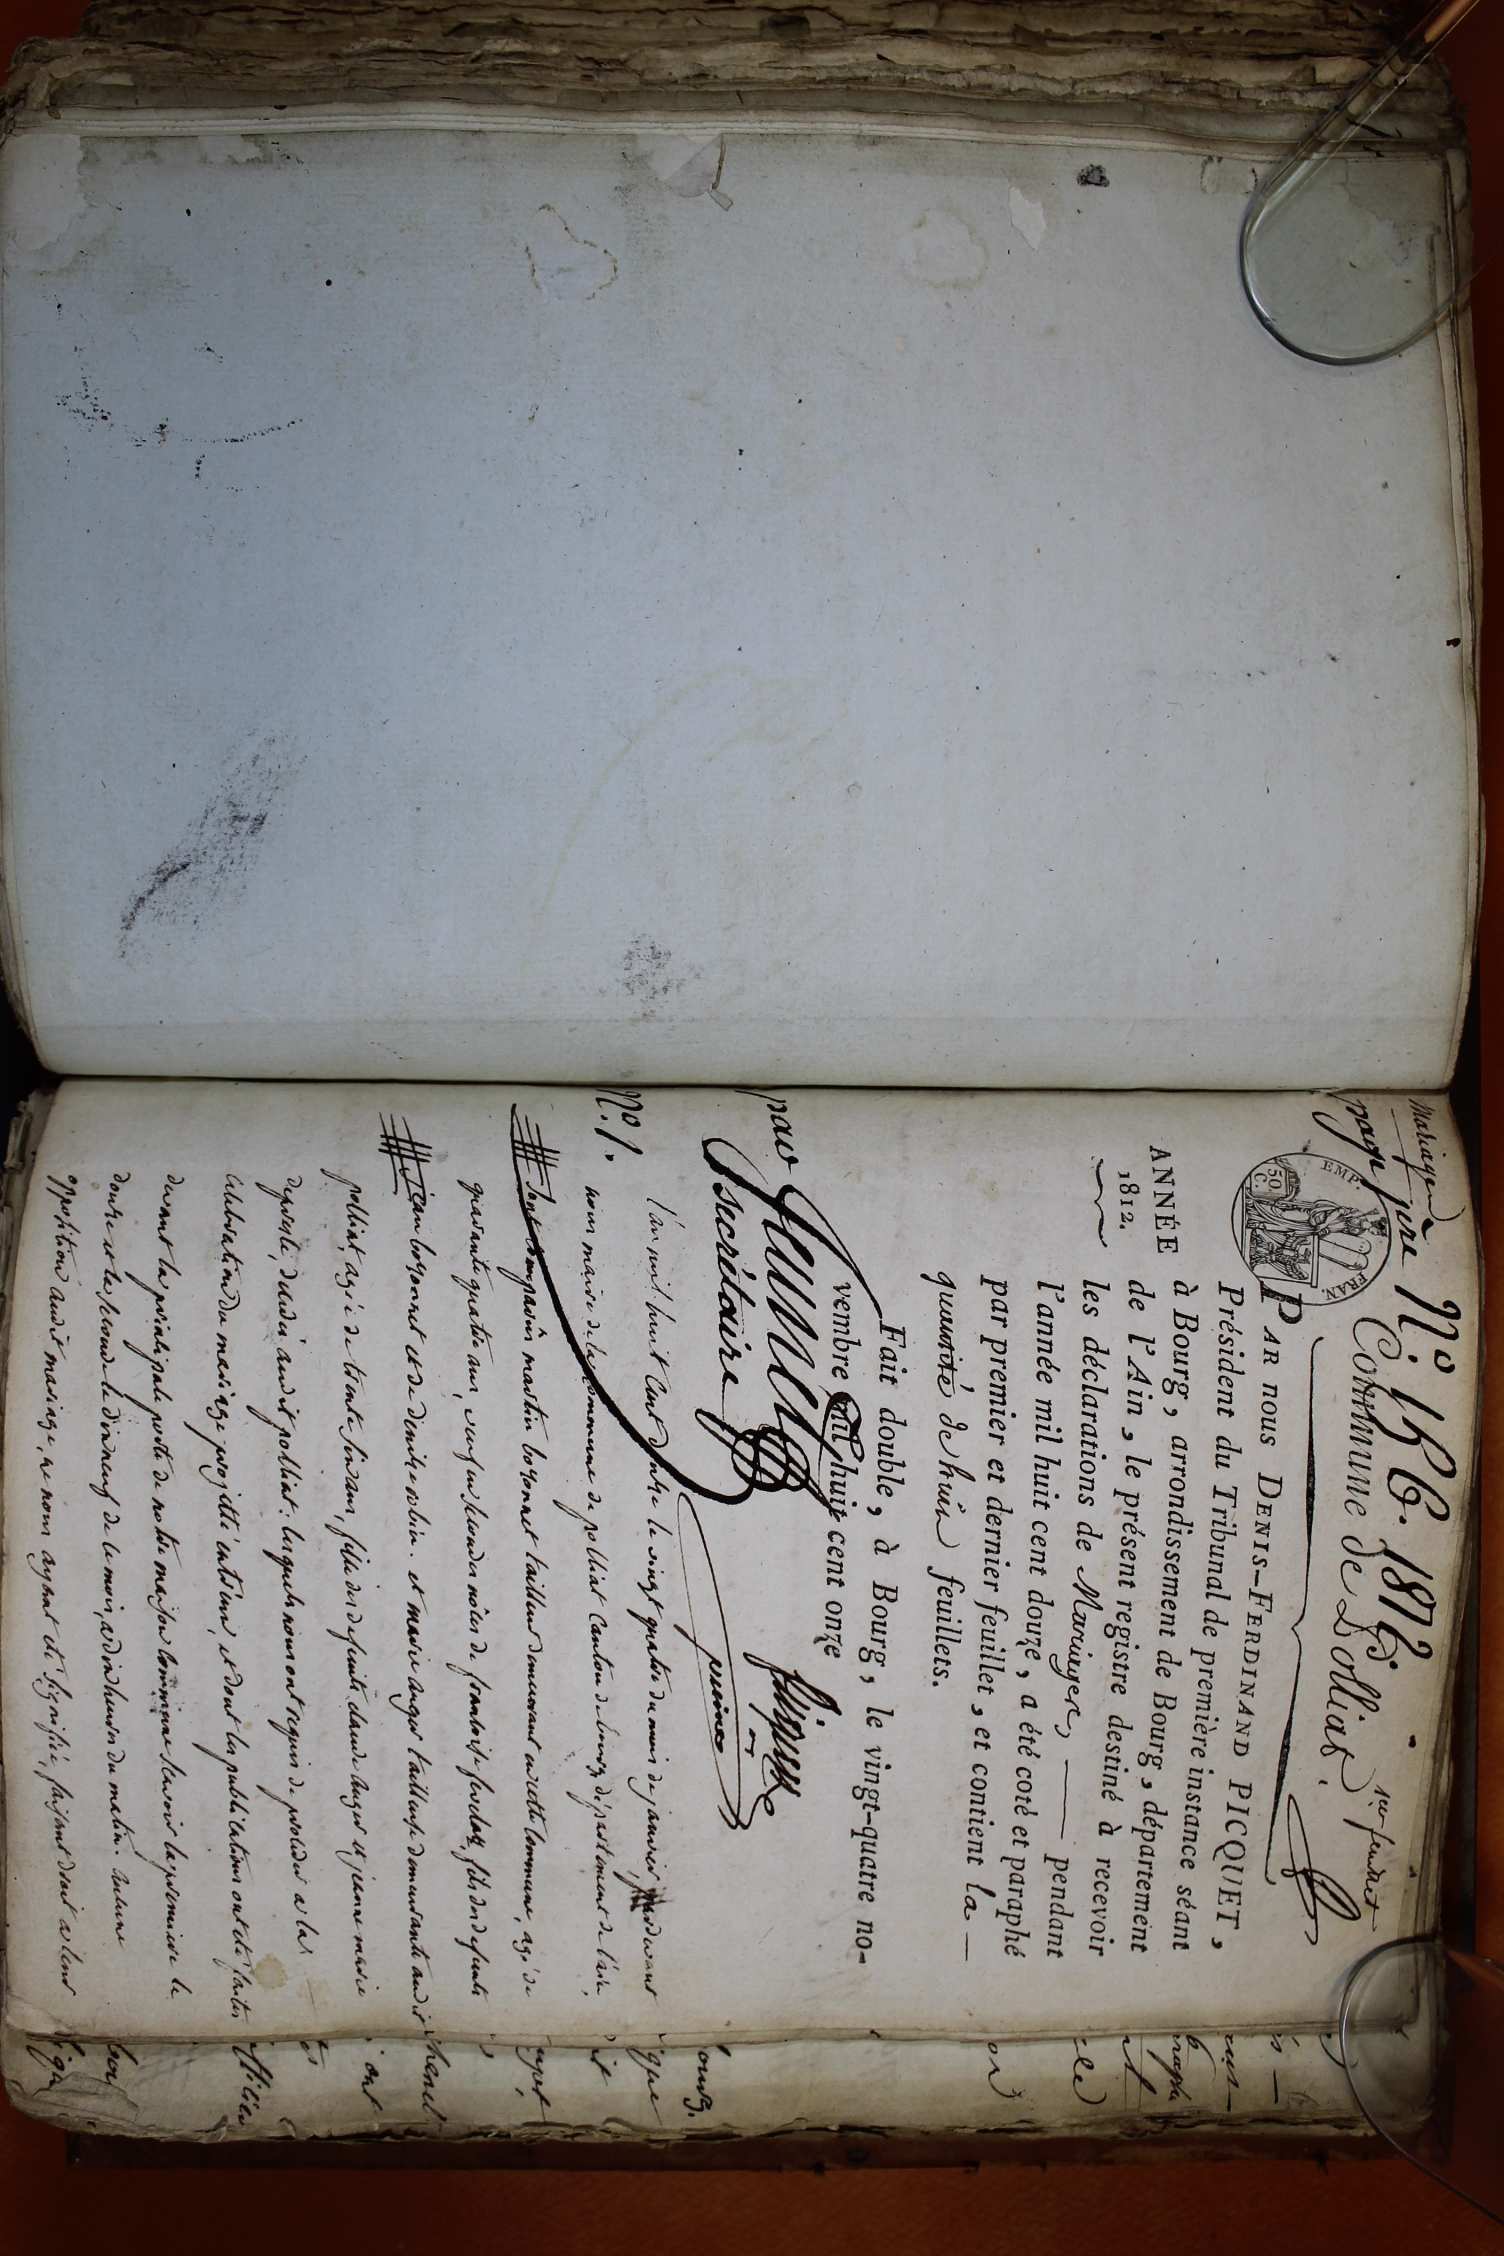 Mariages
N.º 156. 1812.
1er feuillet
page 1ere
Commune de Polliat.
EMP. FRAN.
50 C.
ANNÉE
1812.
PAR nous DENIS-FERDINAND PICQUET,
Président du Tribunal de première instance séant
à Bourg, arrondissement de Bourg, département
de l'Ain, le présent registre destiné à recevoir
les déclarations de Mariages pendant
l'année mil huit cent douze, a été coté et paraphé
par premier et dernier feuillet, et contient la
quantité de huit feuillets.
Fait double, à Bourg, le vingt-quatre no-
vembre mil huit cent onze
par
secrétaire
Nº 1.
l'an mil huit cent douze le vingt quatre du mois de janvier, pardevant
nous maire de la commune de polliat canton de bourg département de l'ain,
sont comparus martin boyonnet tailleur demeurant en cette commune, agé de
quarante quatre ans, veuf en secondes nôces de françoise, fils des defunts
jean boyonnet et de denise. et marie auger tailleuse demeurante audit
polliat, agée de trente six ans, fille des defunts claude auger et jeanne marie
decedés audit polliat; lesquels nous ont requis de proceder a la
celebration du mariage projetté entr'eux, et dont les publications ont été faites
devant la principale porte de notre maison commune scavoir la premiere le
douze et la seconde le dix neuf de ce mois, a dix heures du matin. aucune
opposition audit mariage, ne nous ayant été signifiée, faisant droit a leur